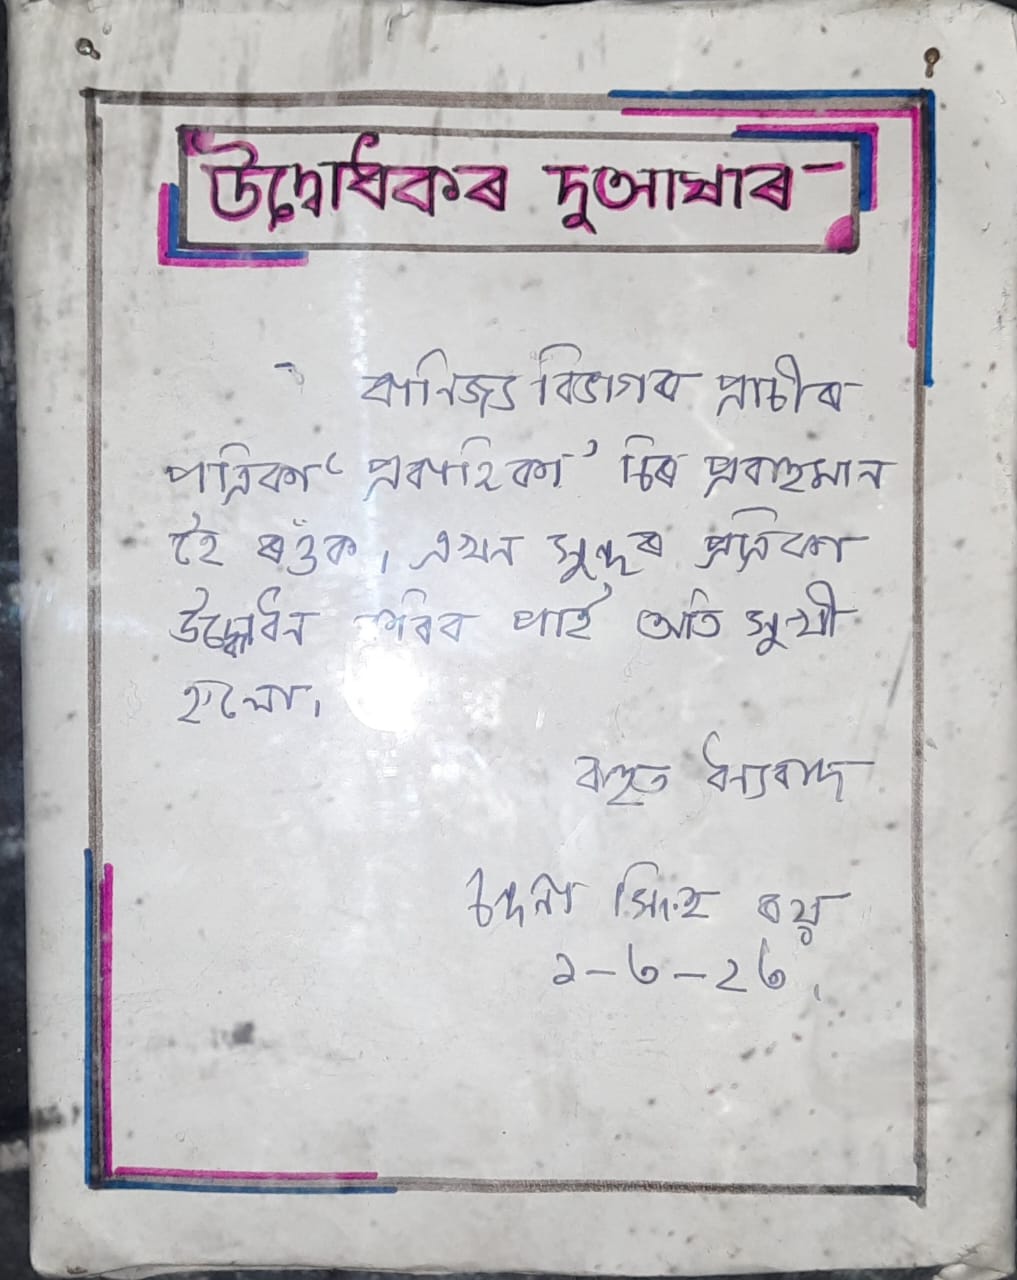 উদ্বোধকৰ দুআষাৰ -
বাণিজ্য বিভাগৰ প্ৰাচীৰ
পত্ৰিকা ‘প্ৰবাহিকা’ চিৰ প্ৰবাহমান
হৈ ৰওঁক। এখন সুন্দৰ পত্ৰিকা
উদ্বোধন কৰিব পাই অতি সুখী
হ'লো।
বহুত ধন্যবাদ
সিংহ
১-৩-২৩